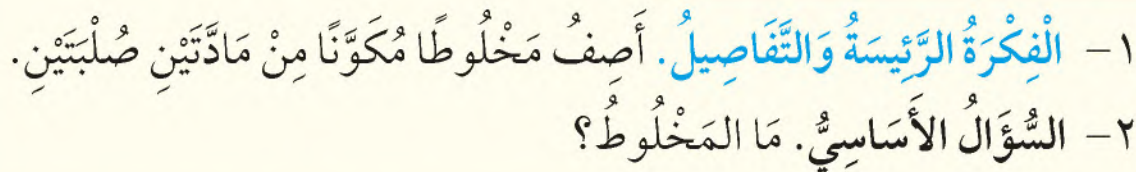 ١- الْفِكْرَةُ الرَّئِيسَةُ وَالتَّفَاصِيلُ. أَصِفُ مَخْلُوطًا مُكَوَّنًا مِنْ مَادَّتَيْنِ صُلْبَتَيْنِ.
٢- السُّؤَالُ الأَسَاسِيُّ. مَا المَخْلُوطُ؟